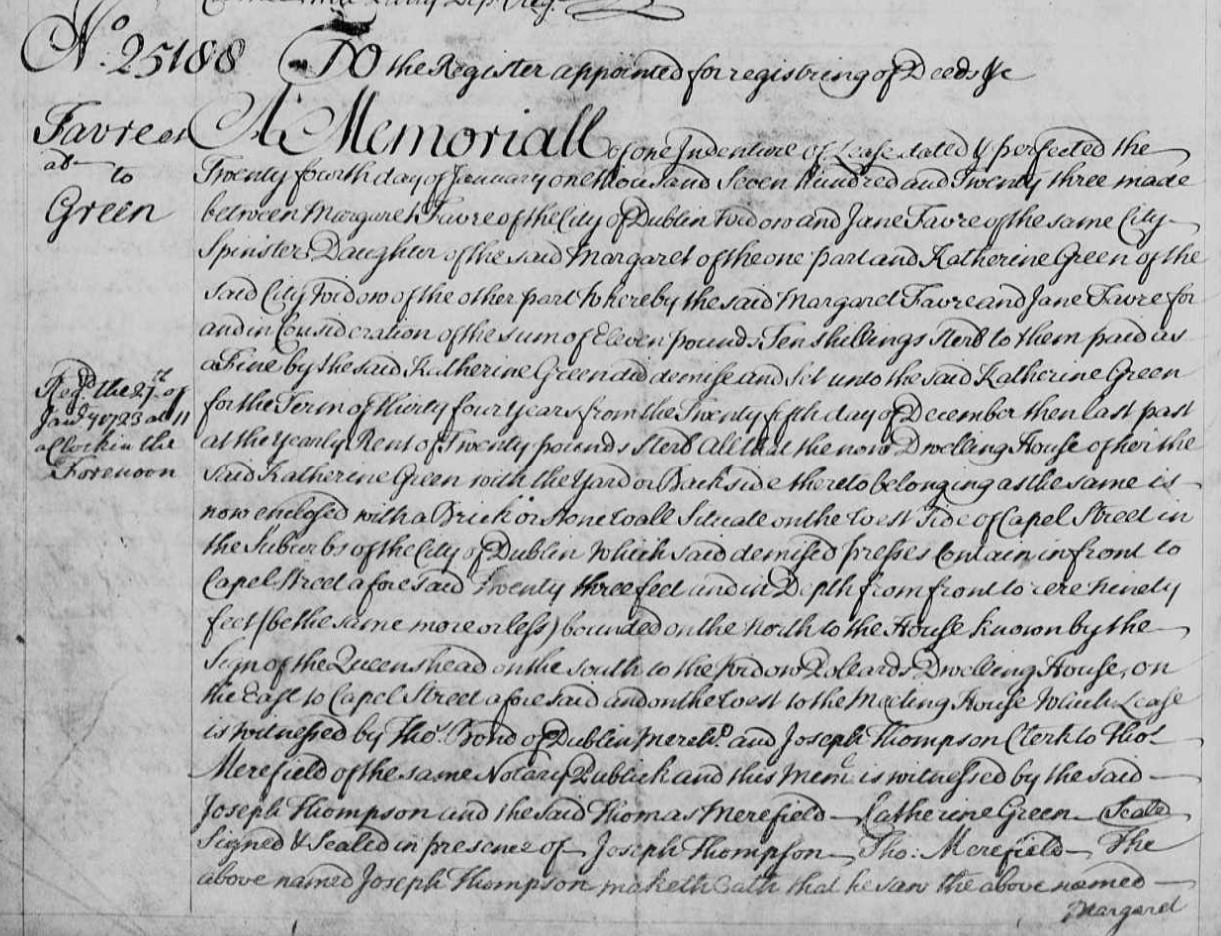 No. 25188 To the Register appointed for registring of Deeds &c
Favre et
al to
Green
A Memoriall of one Indenture of Lease dated & perfected the
Twenty fourth day of January one thousand Seven hundred and Twenty three made
between Margaret Favre of the City of Dublin widow and Jane Favre of the same City
Spinster Daughter of the said Margaret of the one part and Katherine Green of the
said City widow of the other part whereby the said Margaret Favre and Jane Favre for
and in Consideration of the sum of Eleven pounds Ten shillings sterl to them paid as
a Fine by the said Katherine Green did demise and Set unto the said Katherine Green
for the Term of thirty four Years from the Twenty fifth day of December then last past
at the Yearly Rent of Twenty pounds Sterl All that the now Dwelling House of her the
said Katherine Green with the Yard or Backside thereto belonging as the same is
now enclosed with a Brick or stone wall Situate on the West Side of Capel Street in
the Suburbs of the City of Dublin which said demised presses Contain in front to
Capel Street aforesaid Twenty three feet and in Depth from front to rere ninety
feet (be the same more or less) bounded on the North to the House known by the
Sign of the Queens head on the south to the widow Dollards Dwelling House, on
the East to Capel Street aforesaid and on the West to the Meeting House which Lease
is witnessed by Tho: Bond of Dublin Mercht. and Joseph Thompson Clerk to Thos
Merefield of the same Notary Publick and this Meml. is witnessed by the said
Joseph Thompson and the said Thomas Merefield Katherine Green Seale
Signed & Sealed in presence of Joseph Thompson Tho: Merefield The
above named Joseph Thompson maketh Oath that he saw the above named
Margaret
Regd. the 27th of
Janry 1723 at 11
a Clock in the
Forenoon